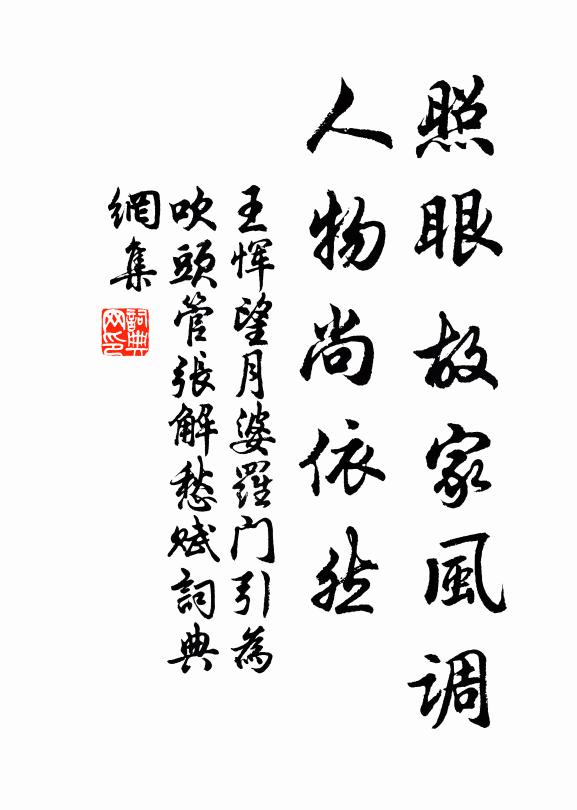 照眼故家風调
人物尚依然
王惲望月婆羅门引為
吹頭管張解愁赋詞典
網集
詞典
网印